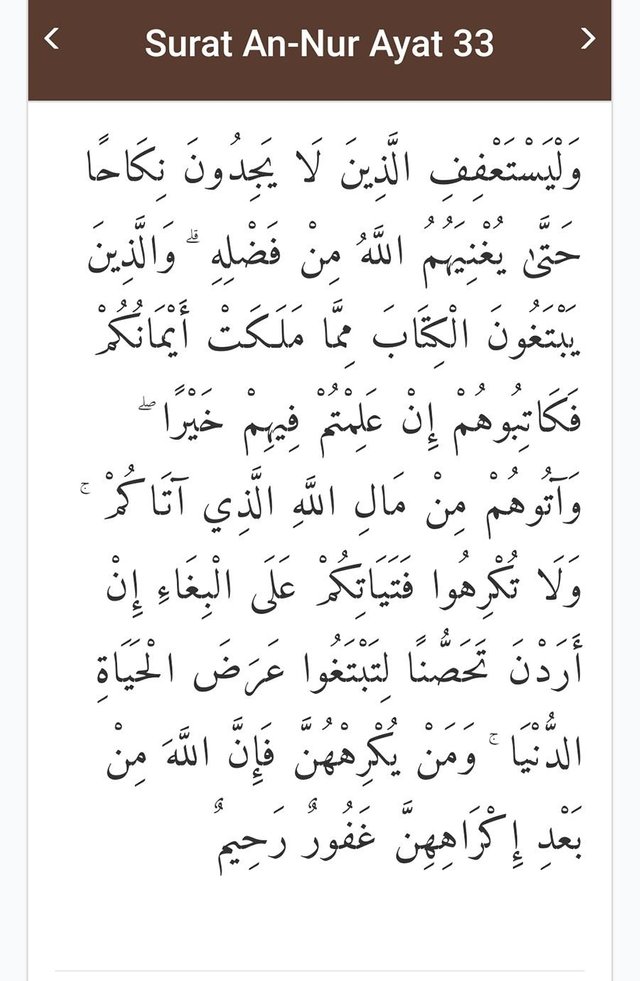 Surat An-Nur Ayat 33
وَلْيَسْتَعْفِفِ الَّذِينَ لَا يَجِدُونَ نِكَاحًا
حَتَّىٰ يُغْنِيَهُمُ اللَّهُ مِنْ فَضْلِهِ ۗ وَالَّذِينَ
يَبْتَغُونَ الْكِتَابَ مِمَّا مَلَكَتْ أَيْمَانُكُمْ
فَكَاتِبُوهُمْ إِنْ عَلِمْتُمْ فِيهِمْ خَيْرًا ۖ
وَآتُوهُمْ مِنْ مَالِ اللَّهِ الَّذِي آتَاكُمْ ۚ
وَلَا تُكْرِهُوا فَتَيَاتِكُمْ عَلَى الْبِغَاءِ إِنْ
أَرَدْنَ تَحَصُّنًا لِتَبْتَغُوا عَرَضَ الْحَيَاةِ
الدُّنْيَا ۚ وَمَنْ يُكْرِهْهُنَّ فَإِنَّ اللَّهَ مِنْ
بَعْدِ إِكْرَاهِهِنَّ غَفُورٌ رَحِيمٌ